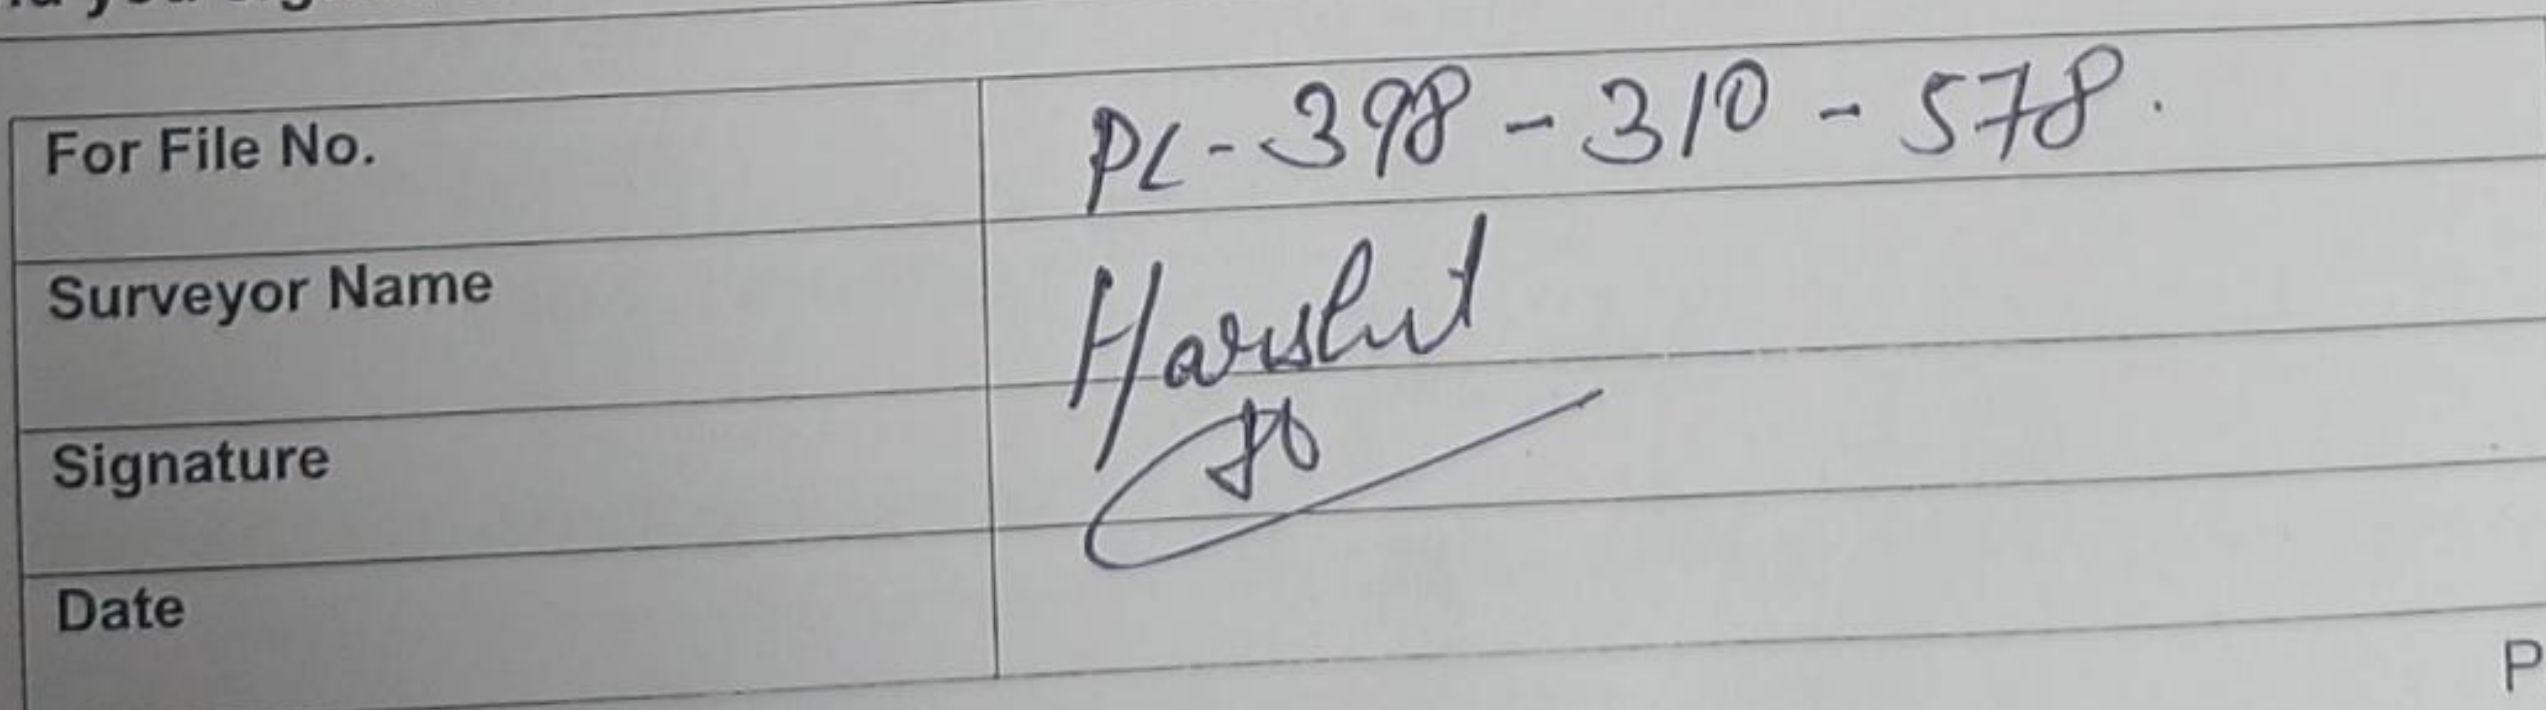 For File No. PL-398-310-578.
Surveyor Name Harshit
Signature
Date
P